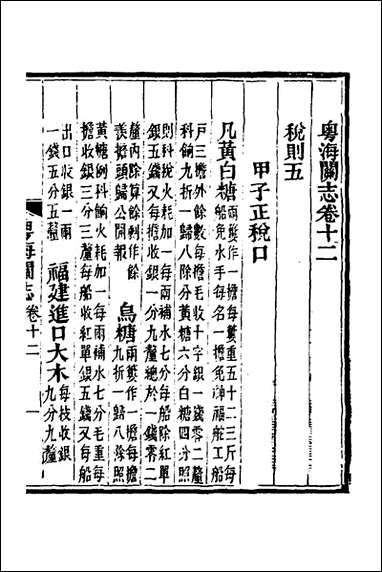 粵海關志卷十二
稅則五
甲子正稅口
凡黃白糖
兩簍作一擔每簍重五十二三斤每
船免水手每名一擔免神福舵工船
戶三擔外餘數每擔毛收十字銀一錢零二釐
科餉九折一歸八除分黃糖六分白糖四分照
則科稅火耗加一每兩補水七分每船除紅單
銀五錢又每擔收銀一分九釐總於一錢零二
釐內除算餘剩作餘
羨擔頭歸公開報
烏糖
兩簍作一擔每擔
九折一歸八除照
黃糖例科餉火耗加一每兩補水七分毛重每
擔收銀三分三釐每船收紅單銀五錢又每船
出口收銀一兩
一錢五分五釐
福建進口大木
每枝收銀
九分九釐
粵海關志 卷十二 一